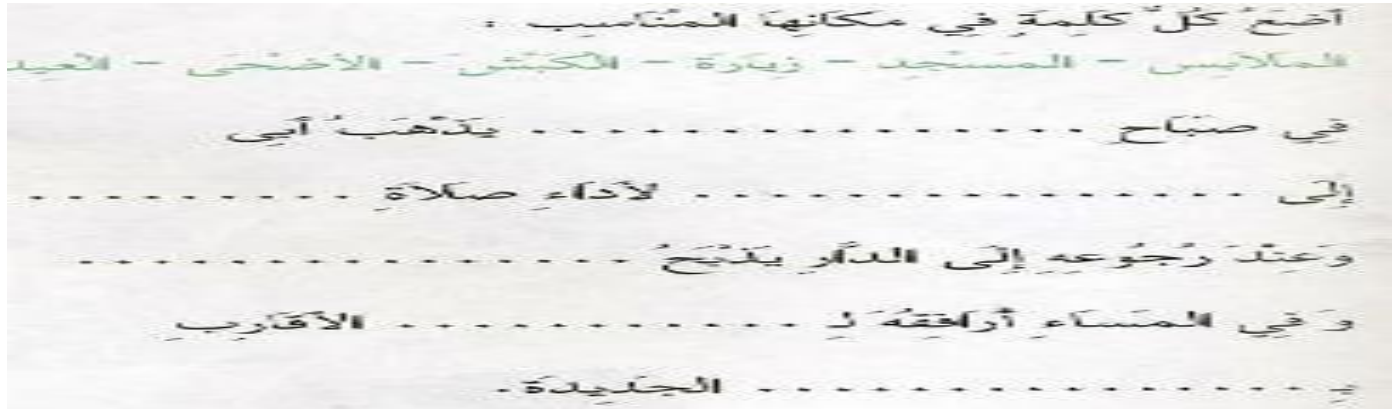 أَضَعُ كُلَّ كَلِمَةٍ فِي مَكَانِهَا المُنَاسِبِ :
المَلَابِسِ - المَسْجِدِ - زِيَارَةِ - الكَبْشَ - الأَضْحَى - العِيدِ
فِي صَبَاحِ ................ يَذْهَبُ أَبِي
إِلَى ................ لأَدَاءِ صَلاَةِ ..........
وَعِنْدَ رُجُوعِهِ إِلَى الدَّارِ يَذْبَحُ ................
وَ فِي المَسَاءِ أُرَافِقُهُ لِـ ............ الأَقَارِبِ
بِـ ................ الجَدِيدَةِ .